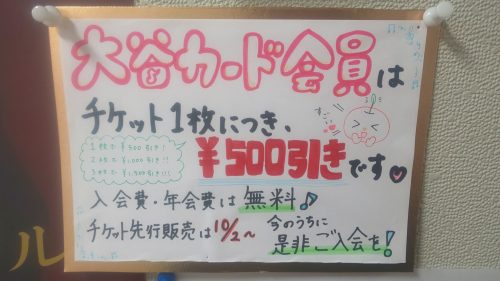 大谷カード会員は
チケット1枚につき、
¥500引きです
1枚で¥500引き!
2枚で¥1,000引き!!
3枚で¥1,500引き!!!
入会費・年会費は無料♪
チケット先行販売は10/2~
今のうちに
是非ご入会を!
ル